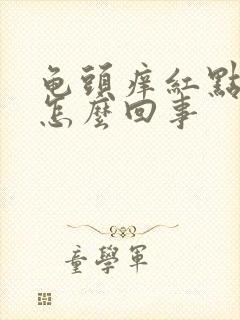 龟頭痒紅點
怎麼回事
童學軍